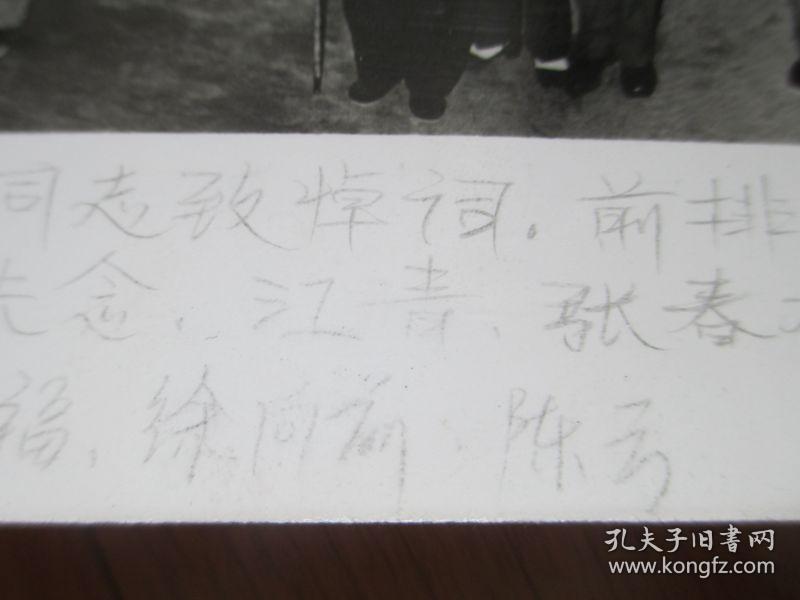 同志致悼词。前排
先念、江青、张春
福、徐向前、陈云
孔夫子旧书网
www.kongfz.com